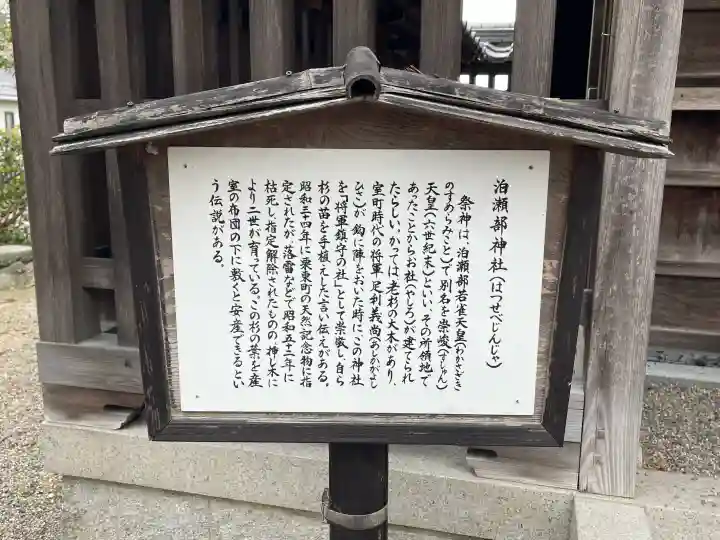 泊瀬部神社(はつせべじんじゃ)
祭神は、泊瀬部若雀天皇(わかさざき
のすめらみこと)で別名を崇峻(すしゅん)
天皇(六世紀末)といい、その所領地で
あったことからお社(やしろ)が建てられ
たらしい。かつては、老杉の大木があり、
室町時代の将軍、足利義尚(あしかがよし
ひさ)が鈎に陣をおいた時に、この神社
を「将軍鎮守の社」として崇敬し、自ら
杉の苗を手植えした、言い伝えがある。
昭和三十四年に栗東町の天然記念物に指
定されたが、落雷などで昭和五十二年に
枯死し、指定解除されたものの、挿し木に
より二世が育っている。この杉の葉を産
室の布団の下に敷くと安産できるとい
う伝説がある。